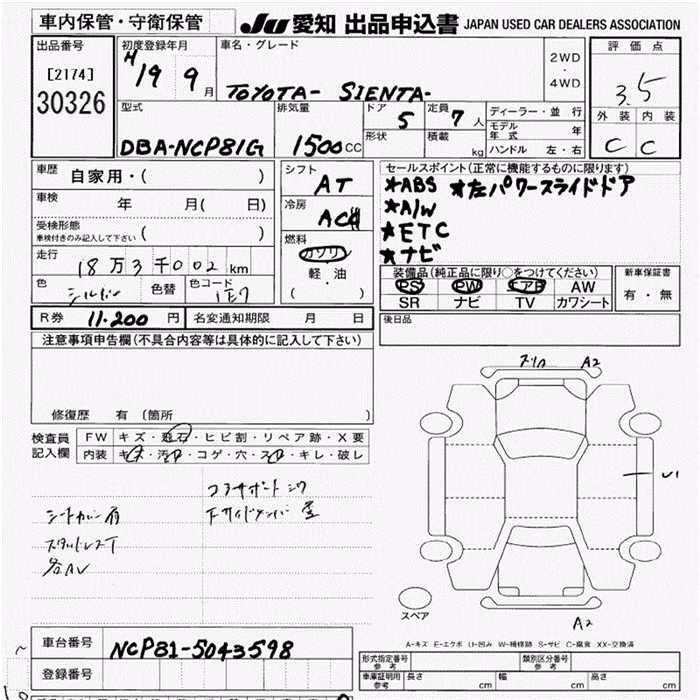 車内保管・守衛保管 JU 愛知 出品申込書 JAPAN USED CAR DEALERS ASSOCIATION
出品番号 初度登録年月 車名・グレード 2WD・4WD 評価点
[2174] H 19 9月 TOYOTA- SIENTA- 3.5
30326 型式 排気量 ドア 5 定員 7人 ディーラー・並行 外装 内装
DBA-NCP81G 1500cc 形状 積載 kg モデル年式 年 C C
ハンドル 左・右
車歴 自家用・( ) シフト AT セールスポイント(正常に機能するものに限ります)
車検 年 月( 日) 冷房 AC ★ABS ★左パワースライドドア
受検形態 ( ) ★A/W
車検付きのみ記入して下さい ★ETC
走行 18万3千002km 燃料 ガソリン ★ナビ
色 シルバー 色替 色コード 1E7 軽・油 ( )
装備品(純正品に限り○をつけてください) 新車保証書
PS PW エアB AW 有・無
SR ナビ TV カワシート
R券 11.200円 名変通知期限 月 日 後日品
注意事項申告欄(不具合内容等は具体的に記入して下さい)
修復歴 有 〔箇所 〕
検査員記入欄 FW キズ・飛石・ヒビ割・リペア跡・X要
内装 キズ・汚れ・コゲ・穴・スレ・キレ・破レ
スリキズ A2
コアサポートシワ
シートカバー有 下サイドメンバー
スタッドレスT
各AV
U1
スペア
A2
A-キズ E-エクボ U-凹み W-補修跡 S-サビ C-腐食 XX-交換済
車台番号 NCP81-5043598
登録番号
形式指定番号 参考 類別区分番号 参考
車庫証明用 参考 長さ cm 幅 cm 高さ cm